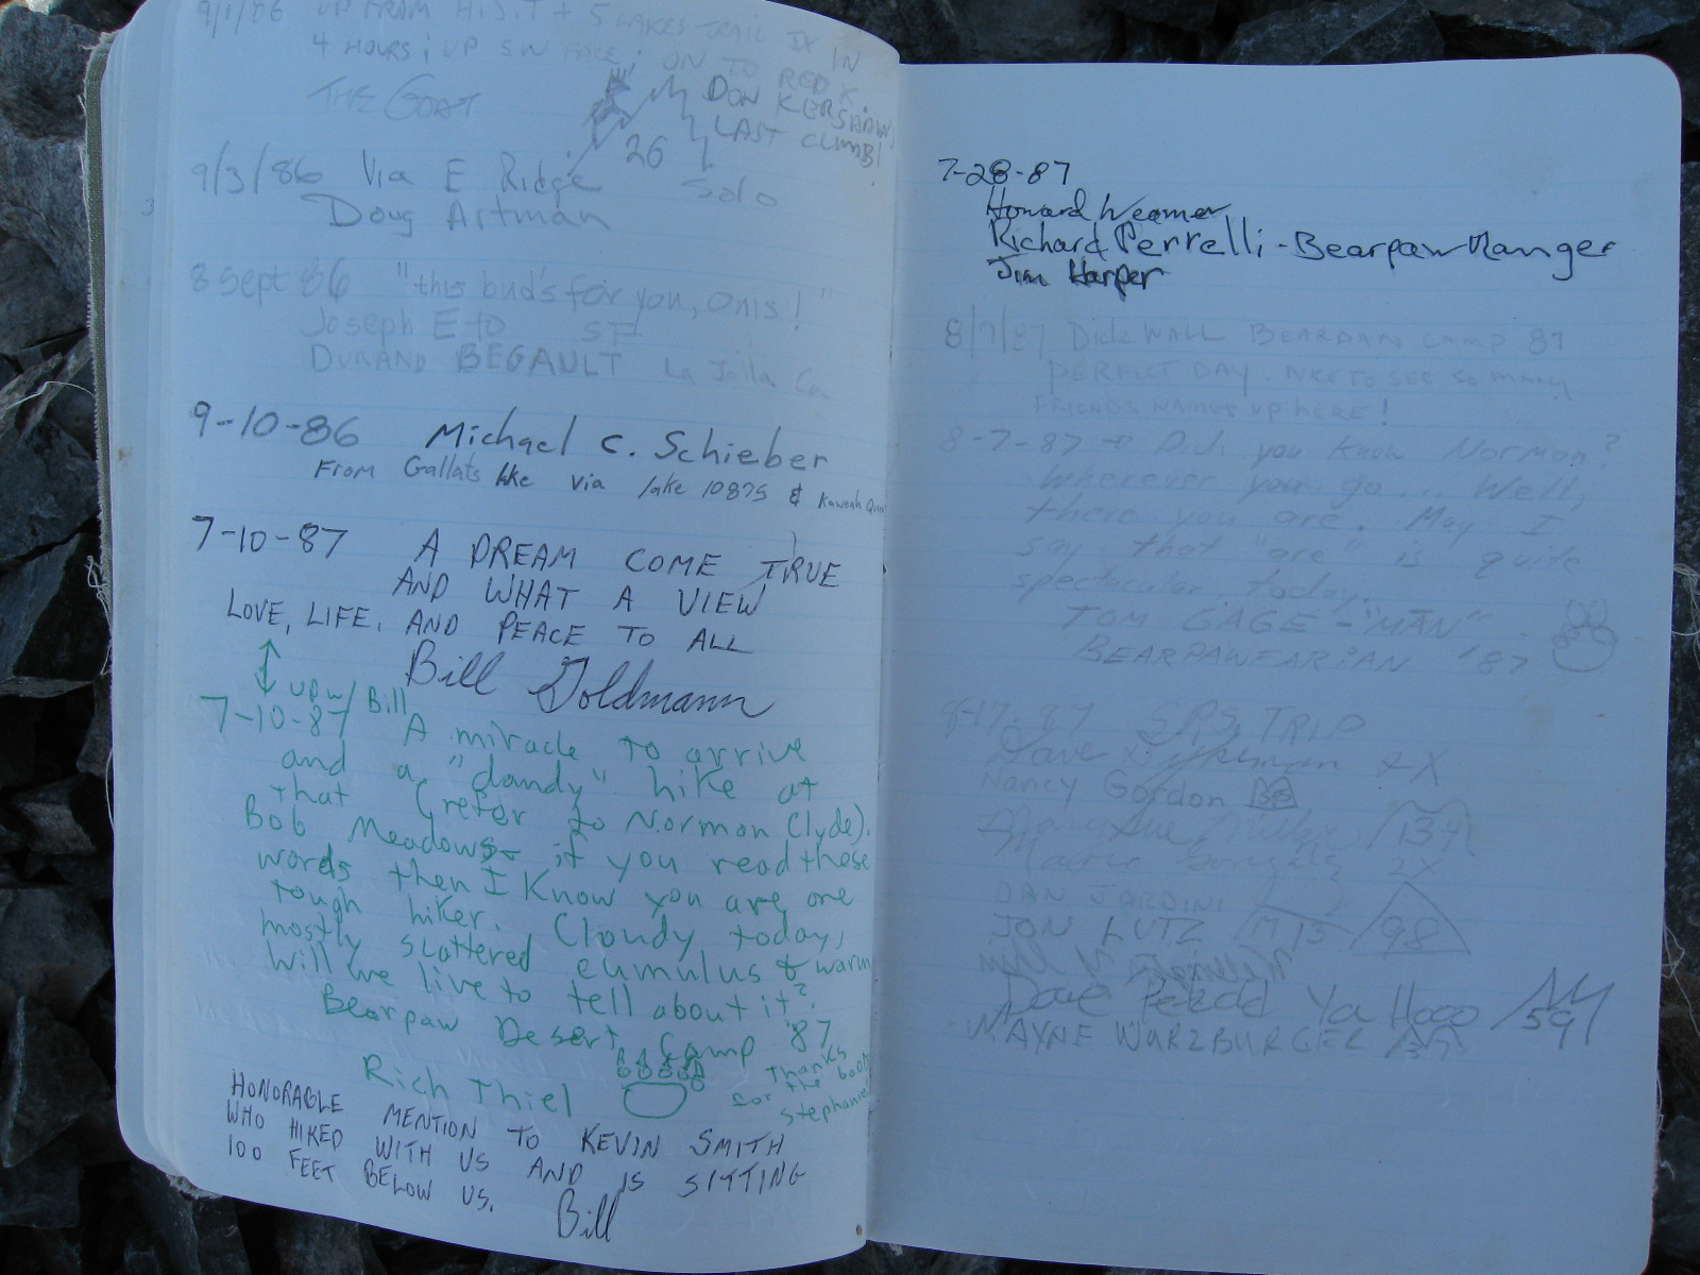 9/1/86 UP FROM H.S.T + 5 LAKES TRAIL IN
4 HOURS; UP SW FACE; ON TO RED K.
THE GOAT
DON KERSHAW
LAST CLIMB!
26
9/3/86 Via E Ridge Solo
Doug Artman
8 Sept 86 "this bud's for you, Onis!"
Joseph Eto SF
DURAND BEGAULT La Jolla Ca
9-10-86 Michael C. Schieber
From Gallats lke via lake 10875 & Kaweah
7-10-87 A DREAM COME TRUE
AND WHAT A VIEW
LOVE, LIFE, AND PEACE TO ALL
Bill Goldmann
up w/ Bill
7-10-87 A miracle to arrive
and a "dandy" hike at
that (refer to Norman Clyde).
Bob Meadows - if you read these
words then I know you are one
tough hiker. Cloudy today,
mostly scattered cumulus & warm
Will we live to tell about it?
Bearpaw Desert Camp '87
Rich Thiel
Thanks
for the boots
Stephanie
HONORABLE MENTION TO KEVIN SMITH
WHO HIKED WITH US AND IS SITTING
100 FEET BELOW US.
Bill
7-28-87
Howard Weamer
Richard Perrelli - Bearpaw Ranger
Jim Harper
8/7/87 Dick WALL BEARPAW CAMP 87
PERFECT DAY. NICE TO SEE SO MANY
FRIENDS NAMES UP HERE!
8-7-87 Did you know Norman?
Wherever you go... Well,
there you are. May I
say that "are" is quite
spectacular today.
TOM GAGE - "MAN"
BEARPAWEARIAN '87
8-17-87 SPS TRIP
Dave Dykeman 2X
Nancy Gordon
134
2X
DAN JORDINI
JON LUTZ M15 98
Dave Ya Hooo 59
WAYNE WURZBURGER